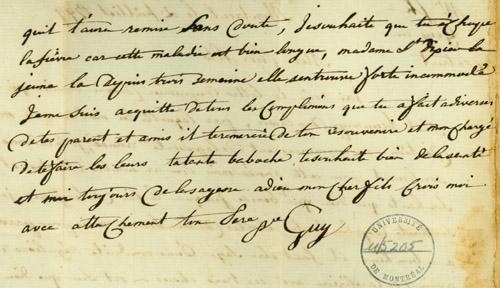 quil t'aura remise sans doute, je souhaite que tu échape
la fièvre car cette maladie est bien longue, madame St
jeune la depuis trois semaine elle sentrouve forte incommodé
Jeme suis acquitte detous les Complimens que tu afait adiverses
detes parent et amis il te remercie de ton resouvenir et mon chargé
detefaire les leurs ta tante babache te souhaite bien delasanté
et moi toujours de la sagesse adieu mon cher fils Crois moi
avec attachement ton Pere Pre Guy
UNIVERSITÉ
U/5205
DE MONTRÉAL